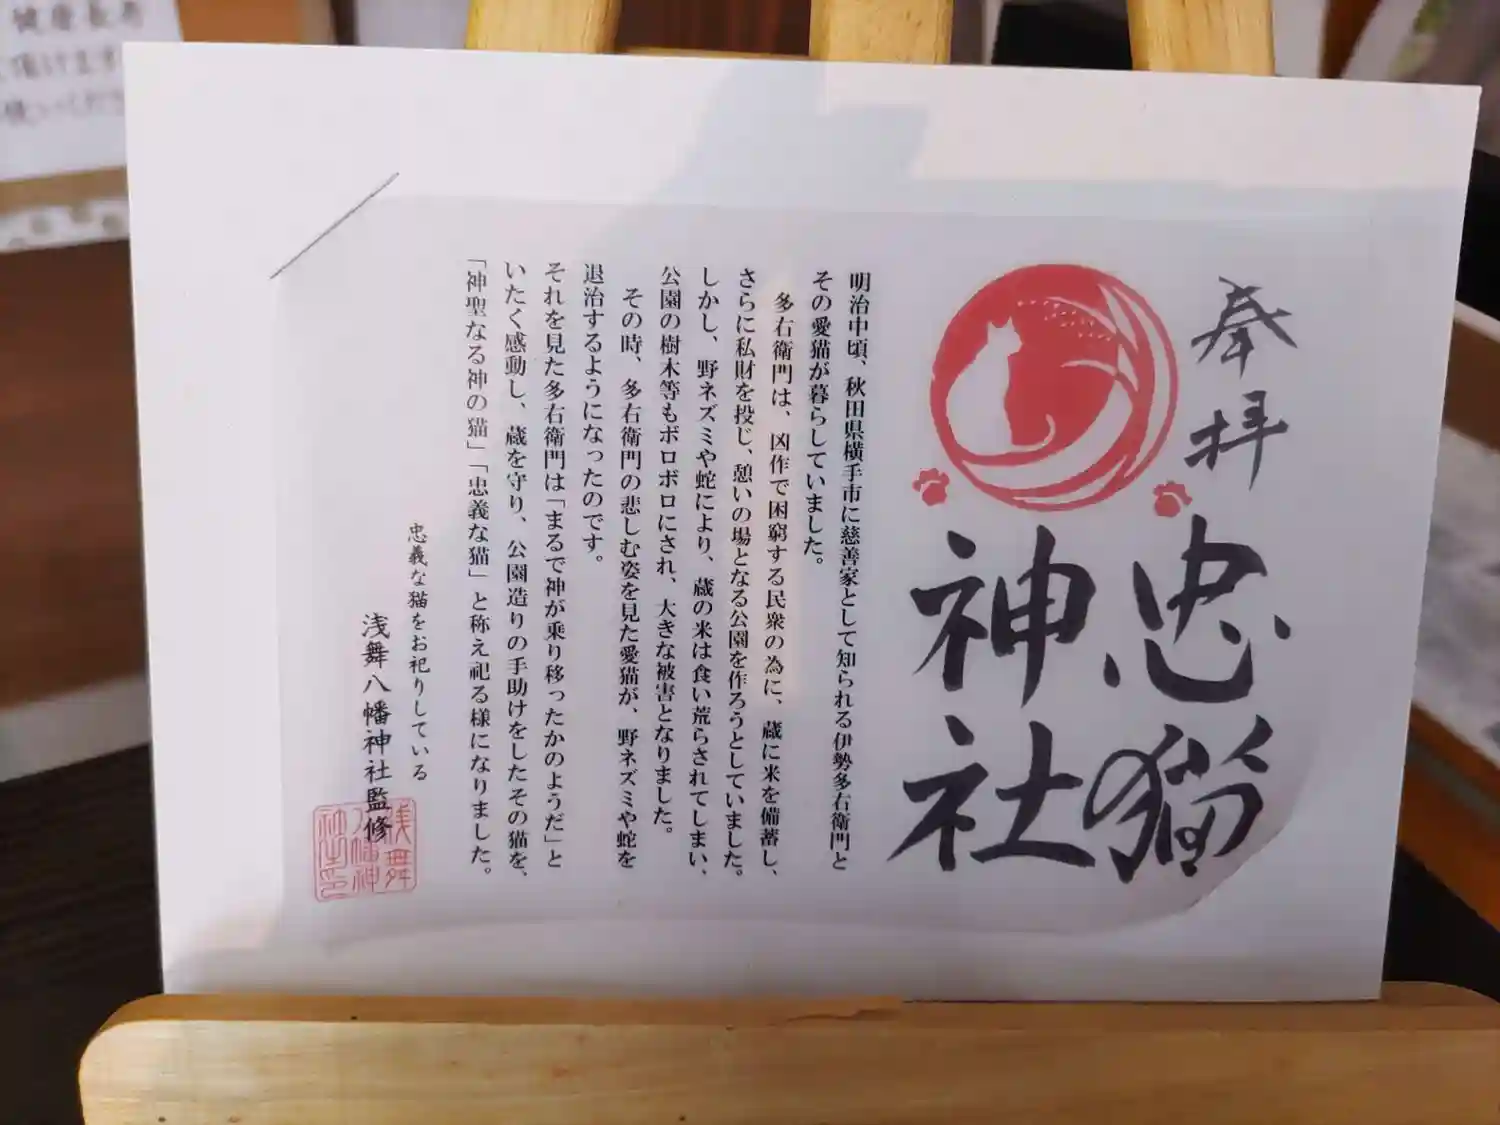 奉拝
忠猫
神社
明治中頃、秋田県横手市に慈善家として知られる伊勢多右衛門と
その愛猫が暮らしていました。
多右衛門は、凶作で困窮する民衆の為に、蔵に米を備蓄し、
さらに私財を投じ、憩いの場となる公園を作ろうとしていました。
しかし、野ネズミや蛇により、蔵の米は食い荒らされてしまい、
公園の樹木等もボロボロにされ、大きな被害となりました。
その時、多右衛門の悲しむ姿を見た愛猫が、野ネズミや蛇を
退治するようになったのです。
それを見た多右衛門は「まるで神が乗り移ったかのようだ」と
いたく感動し、蔵を守り、公園造りの手助けをしたその猫を、
「神聖なる神の猫」「忠義な猫」と称え祀る様になりました。
忠義な猫をお祀りしている
浅舞八幡神社監修
浅舞
八幡神
社印